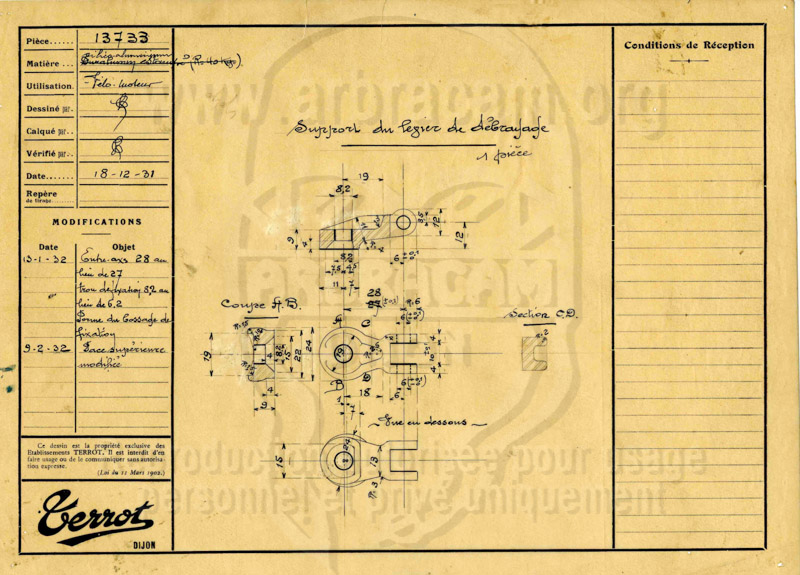 Pièce...... 13733
Matière ...
Utilisation. Vélo-moteur
Dessiné par.
Calqué par..
Vérifié par..
Date....... 18-12-31
Repère
de tirage
MODIFICATIONS
Date Objet
13-1-32 Entre-axs 28 au
lieu de 27
trou de fixation 8,2 au
lieu de 6,2
Forme du bossage de
fixation
9-2-32 Face supérieure
modifiée
Ce dessin est la propriété exclusive des
Etablissements TERROT. Il est interdit d'en
faire usage ou de le communiquer sans autorisa-
tion expresse.
(Loi du 11 Mars 1902.)
Terrot
DIJON
www.arbracam.org
Support du levier de débrayage
1 pièce
19
8,2
9
4
12
12
6
28
Coupe A.B.
Section C.D.
A
C
B
D
19
15
22
24
19
4
9
18
1
7
Vue en dessous
15
24
13
ARBRACAM
Reproduction autorisée pour usage
personnel et privé uniquement
Conditions de Réception